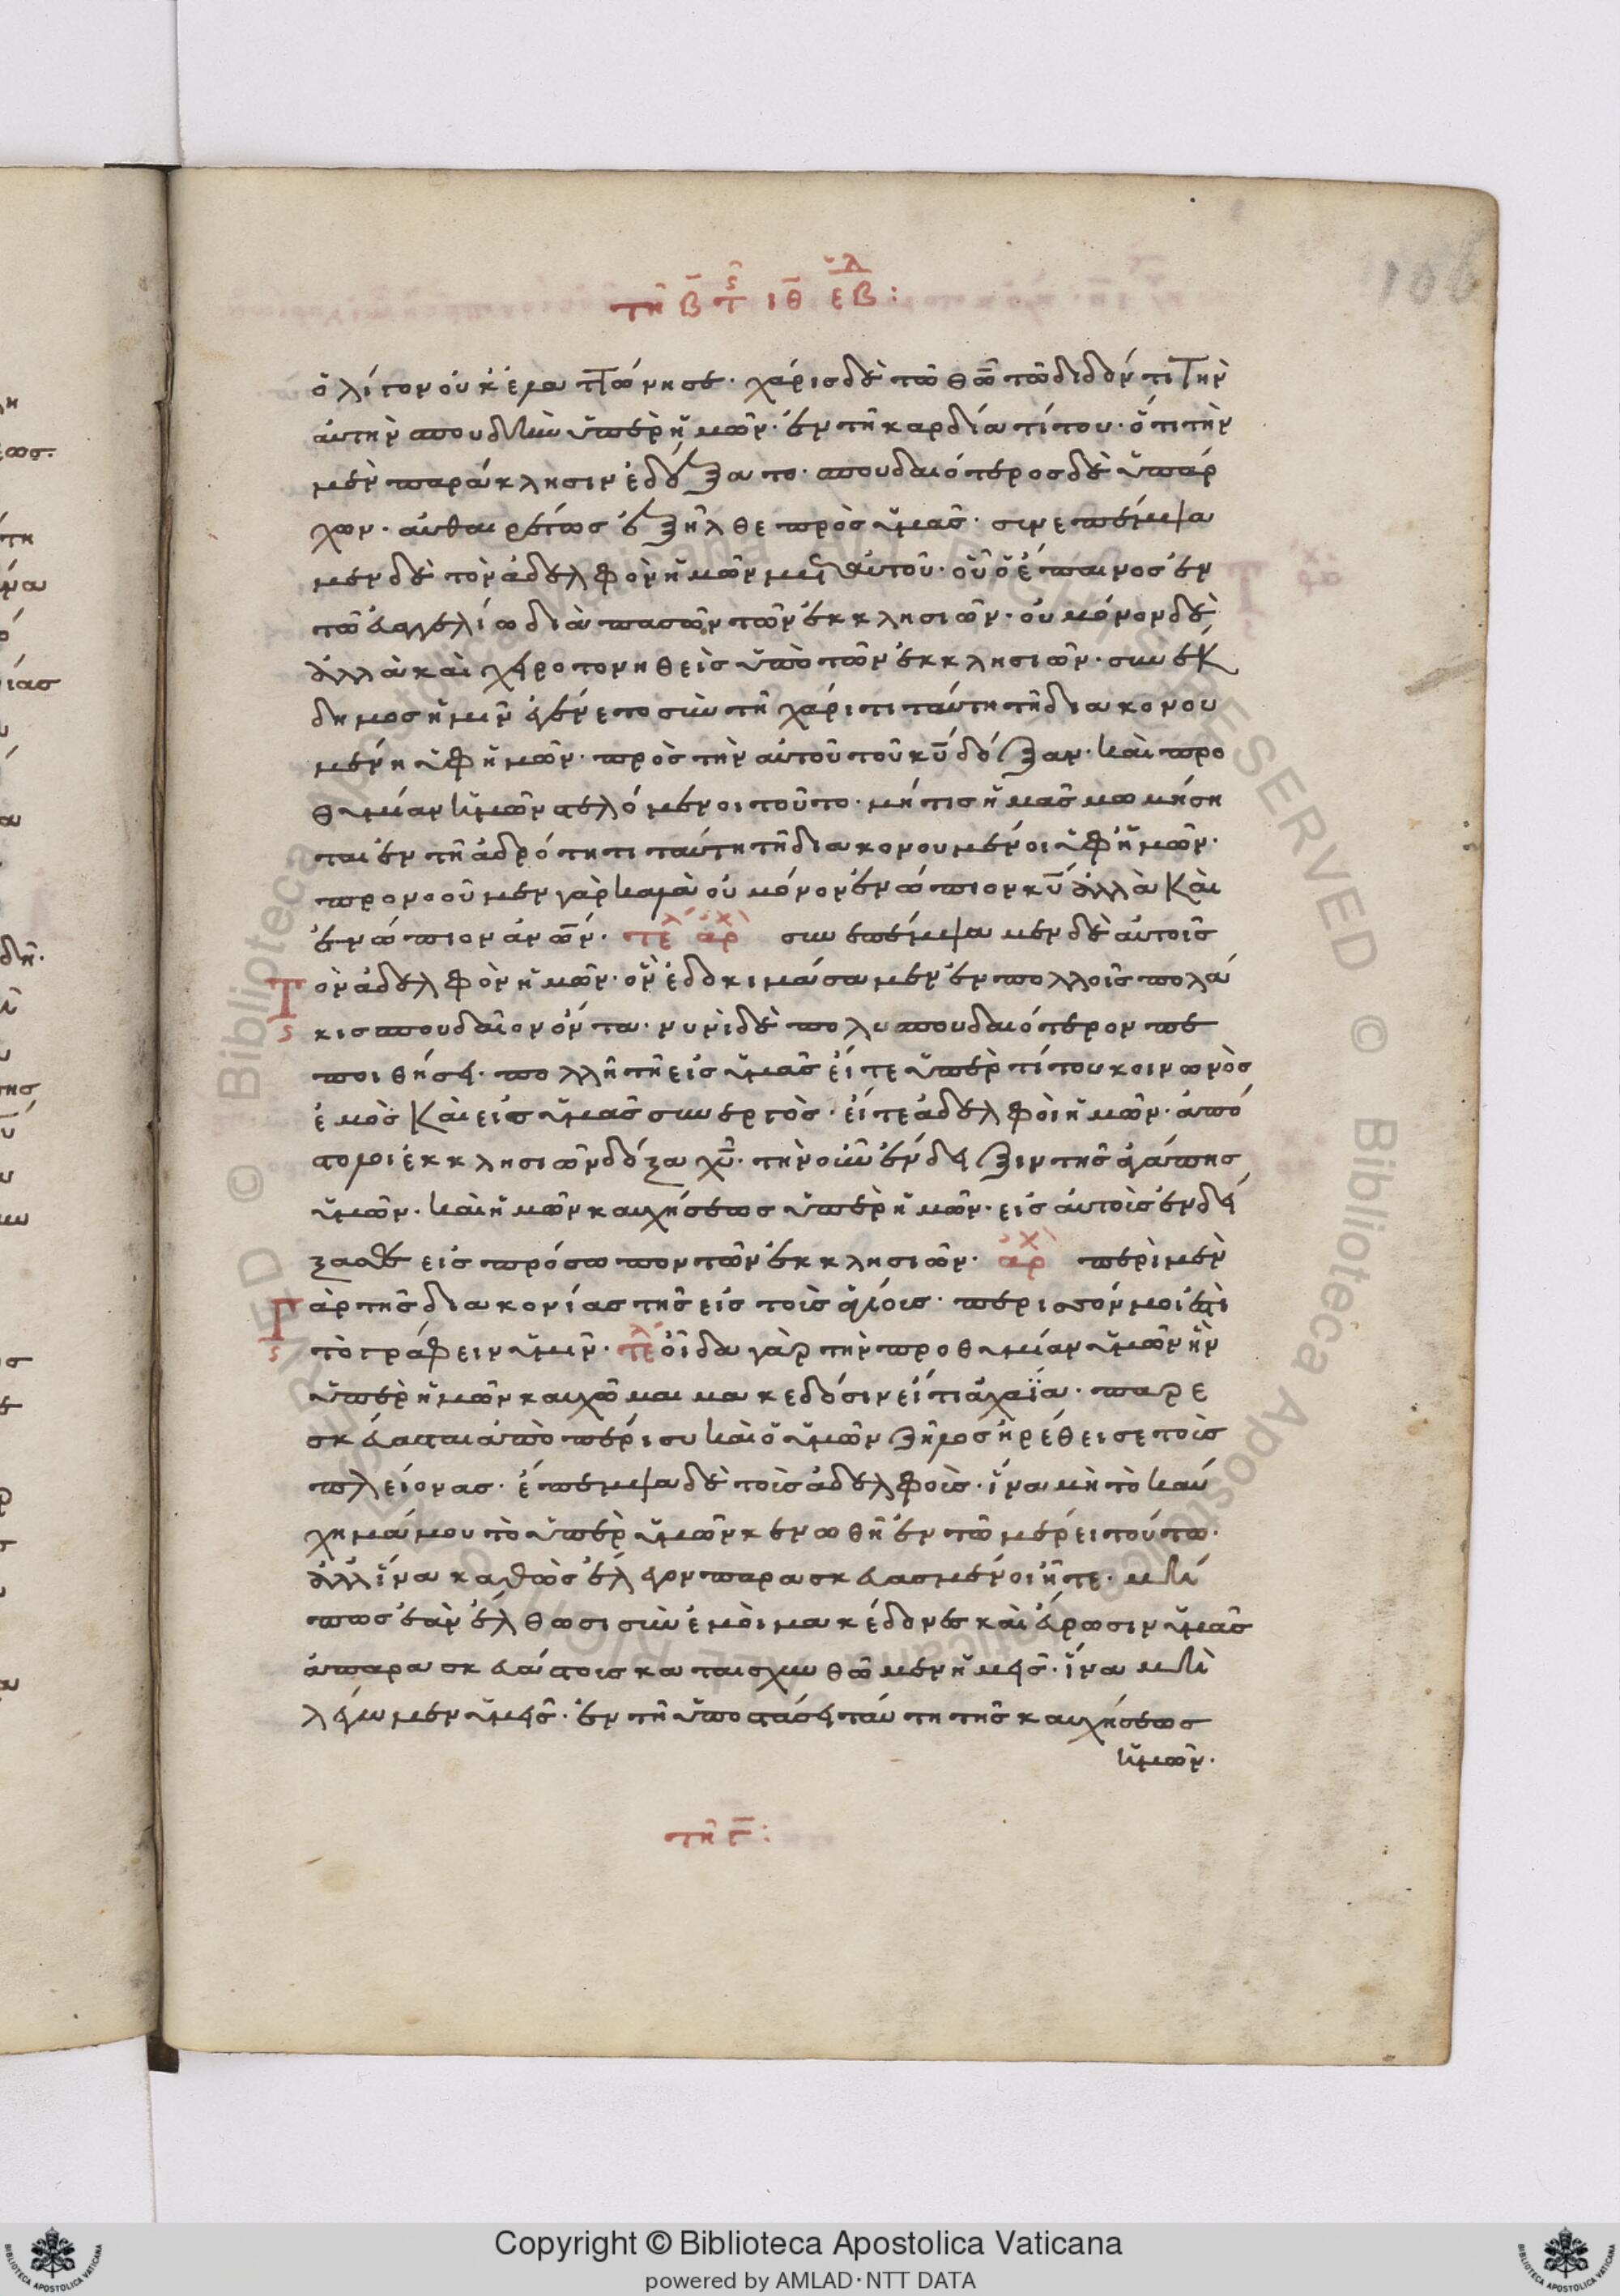 τῆ β̄ τ̄ς ιθ̄ εβ̄λ:
ὀλίγον οὐκ ἐλαττώνησε· χάρις δὲ τῶ θῶ τῶ διδόντι τὴν
αὐτὴν σπουδὴν ὑπὲρ ἡμῶν· ἐν τῆ καρδία τίτου· ὅτι τὴν
μὲν παράκλησιν ἐδέξατο· σπουδαιότερος δὲ ὑπάρ
χων· αὐθαιρέτως ἐξῆλθε πρὸς ὑμᾶς· συνεπέμψα
μεν δὲ τὸν ἀδελφὸν ἡμῶν μετ αὐτοῦ· οὗ ὁ ἔπαινος ἐν
τῶ εὐαγγελίω διὰ πασῶν τῶν ἐκκλησιῶν· οὐ μόνον δὲ
ἀλλὰ καὶ χειροτονηθεὶς ὑπὸ τῶν ἐκκλησιῶν· συνέκ
δημος ἡμῖν ἐγένετο σὺν τῆ χάριτι ταύτη τῆ διακονου
μένη ὑφ ἡμῶν· πρὸς τὴν αὐτοῦ τοῦ κ̄ῡ δόξαν· καὶ προ
θυμίαν ἡμῶν στελόμενοι τοῦτο· μήτις ἡμᾶς μωμήση
ται ἐν τῆ ἁδρότητι ταύτη τῆ διακονουμένοι ὑφ ἡμῶν·
προνοοῦμεν γὰρ καλὰ οὐ μόνον ἐνώπιον κ̄ῡ ἀλλὰ καὶ
ἐνώπιον ἀν̄ων· τελ ἀρχ συνεπέμψαμεν δὲ αὐτοῖς
Τὸν ἀδελφὸν ἡμῶν· ὃν ἐδοκιμάσαμεν ἐν πολλοῖς πολά
κις σπουδαῖον ὄντα· νυνὶ δὲ πολυ σπουδαιότερον πε
ποιθήσει· πολλῆ τῆ εἰς ὑμᾶς εἴτε ὑπὲρ τίτου κοινωνὸς
ἐμὸς καὶ εἰς ὑμᾶς συνεργὸς· εἴτε ἀδελφοὶ ἡμῶν· ἀπό
στολοι ἐκκλησιῶν δόξα χ̄ῡ· τὴν οὖν ἔνδειξιν τῆς ἀγάπης
ὑμῶν· καὶ ἡμῶν καυχήσεως ὑπὲρ ἡμῶν· εἰς αὐτοὺς ἐνδεί
ξασθε εἰς πρόσωπον τῶν ἐκκλησιῶν· ἀρχ περὶ μὲν
Γὰρ τῆς διακονίας τῆς εἰς τοὺς ἁγίους· περισσόν μοι ἐστὶ
τὸ γράφειν ὑμῖν· τελ οἶδα γὰρ τὴν προθυμίαν ὑμῶν ἣν
ὑπὲρ ἡμῶν καυχῶμαι μακεδόσιν εἴτι ἀχαΐα· παρε
σκεύασται ἀπὸ πέρισυ καὶ ὁ ὑμῶν ζῆλος ἠρέθεισε τοὺς
πλείονας· ἔπεμψα δὲ τοὺς ἀδελφοὺς· ἵνα μὴ τὸ καύ
χημά μου τὸ ὑπὲρ ὑμῶν κενωθῆ ἐν τῶ μέρει τούτω·
ἀλλ ἵνα καθὼς ἔλεγον παρασκευασμένοι ἦτε· μή
πως ἐὰν ἔλθωσι σὺν ἐμοὶ μακέδονες καὶ εὕρωσιν ὑμᾶς
ἀπαρασκευάστους καταισχυνθῶμεν ἡμεῖς· ἵνα μὴ
λέγωμεν ὑμεῖς· ἐν τῆ ὑποστάσει ταύτη τῆς καυχήσεως
ἡμῶν·
τῆ γ̄:
Copyright © Biblioteca Apostolica Vaticana
powered by AMLAD·NTT DATA